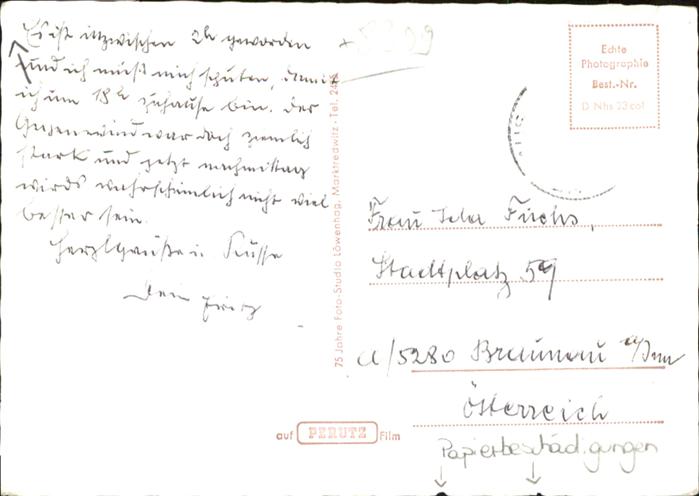 Es ist inzwischen 2h geworden
und ich muß mich sputen, damit
ich um 18h zuhause bin. Der
Gegenwind war doch ziemlich
stark und jetzt nachmittag
wirds wahrscheinlich nicht viel
besser sein.
Herzl. Grüße u. Küsse
Dein Fritz
75 Jahre Foto-Studio Löwenhag, Marktredwitz · Tel.
Echte
Photographie
Best.-Nr.
D Nhs 23 col
Frau Ida Fuchs,
Stadtplatz 59
A/5280 Braunau a/Inn
Österreich
auf PERUTZ Film
Papierbeschädigungen